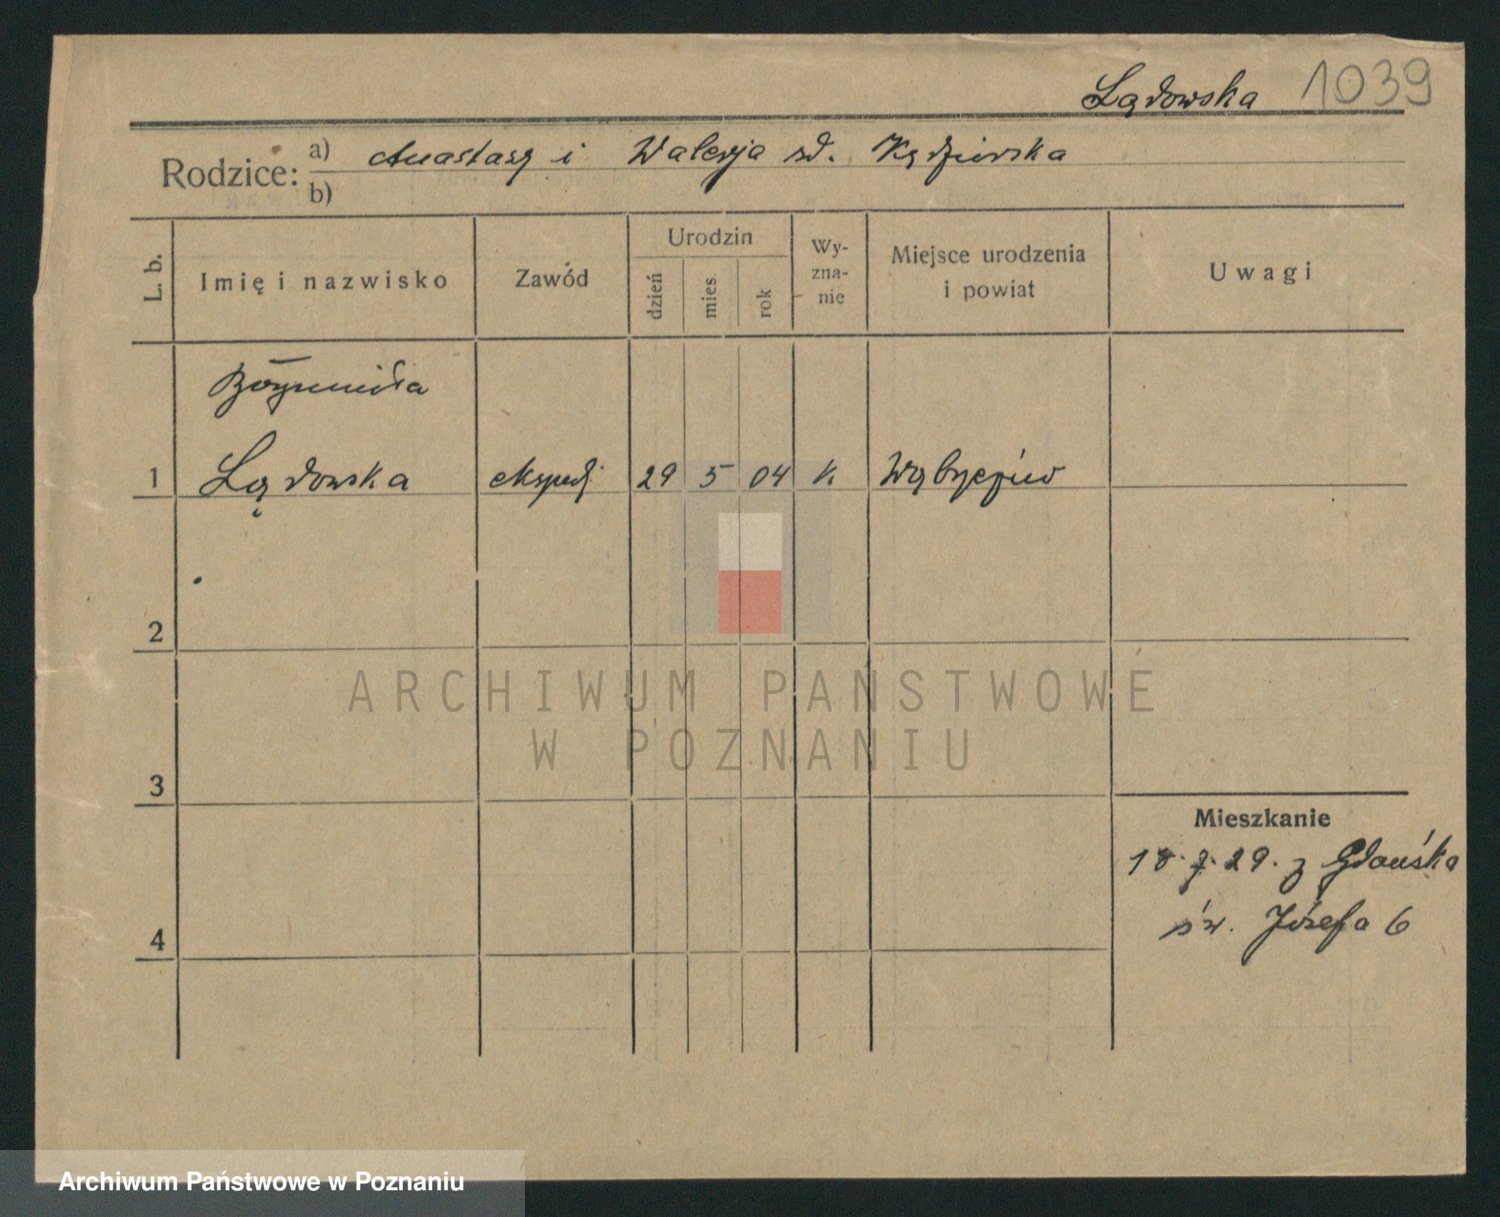 Lądowska 1039
Rodzice: a) Anastazy i Walerja zd. Kędzierska
b)
L. b.
Imię i nazwisko
Zawód
Urodzin
dzień
mies.
rok
Wy-
zna-
nie
Miejsce urodzenia
i powiat
Uwagi
Bożumiła
1 Lądowska ekspedj. 29 5 04 k. Wąbrzeźno
2
3
4
Mieszkanie
18.7.29. z Gdańska
św. Józefa 6
ARCHIWUM PAŃSTWOWE
W POZNANIU
Archiwum Państwowe w Poznaniu